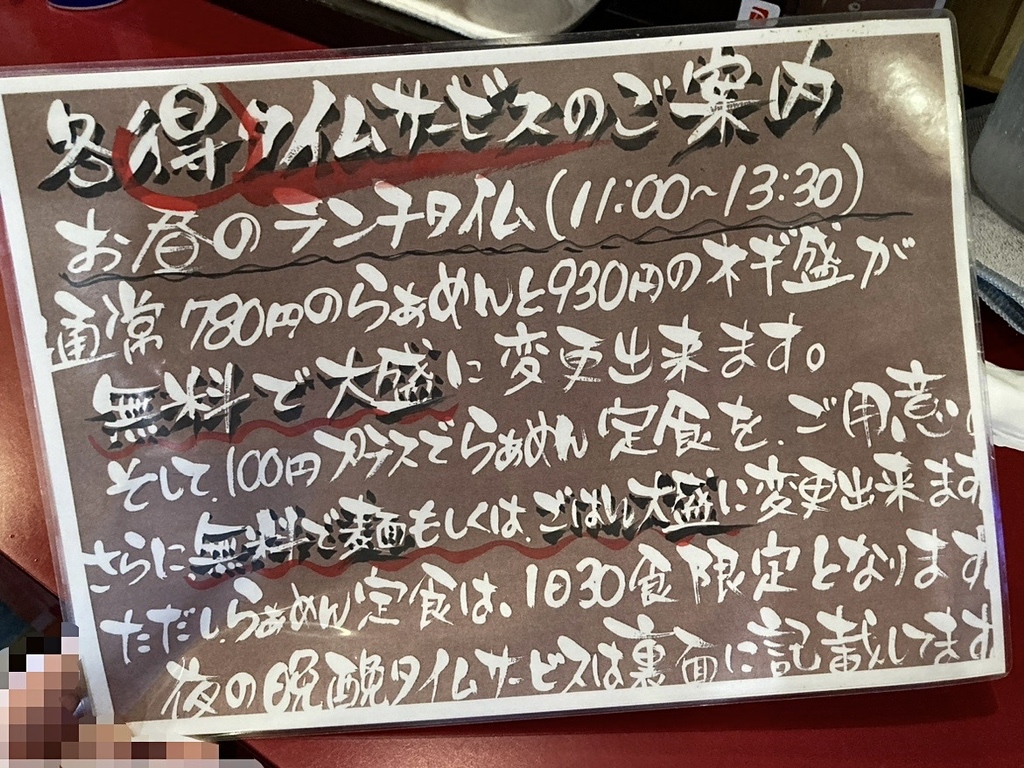 各得タイムサービスのご案内
お昼のランチタイム(11:00~13:30)
通常780円のらぁめんと930円のネギ盛が
無料で大盛に変更出来ます。
そして、100円プラスでらぁめん定食を、ご用意い
さらに、無料で麺もしくは、ごはん大盛に変更出来ます
ただし、らぁめん定食は、1日30食限定となります
夜の晩酌タイムサービスは裏面に記載してます